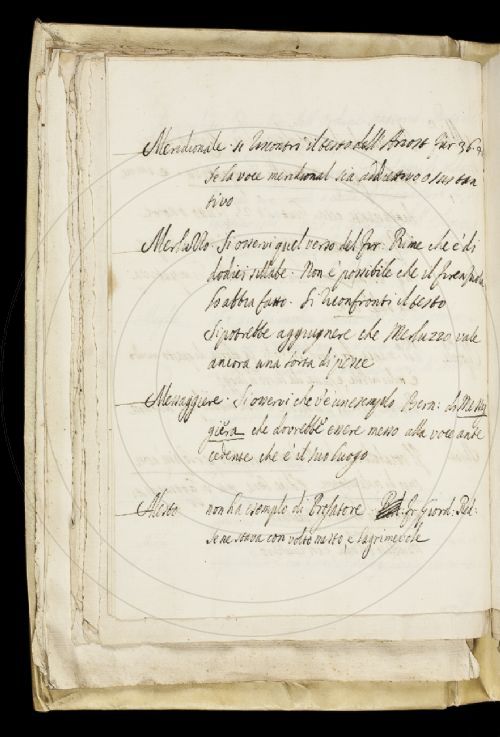 Meridionale. Si riscontri il testo dell'Ariost. Fur. 36.
se la voce meridional sia addiettivo o sustan
tivo
Merluzzo. Si osservi quel verso del fur. Rime che è di
dodici sillabe. Non è possibile che il
lo abbia fatto. Si riconfronti il testo
Si potrebbe aggiugnere che Merluzzo vale
ancora una sorta di pesce
Messaggiere. Si osservi che v'è un esempio Bern: di Messag
giera che dovrebbe essere messo alla voce ante
cedente che è il suo luogo
Mesto non ha esempio di Prosatore. Fr. Giord: Pred:
se ne stava con volto mesto, e lagrimevole